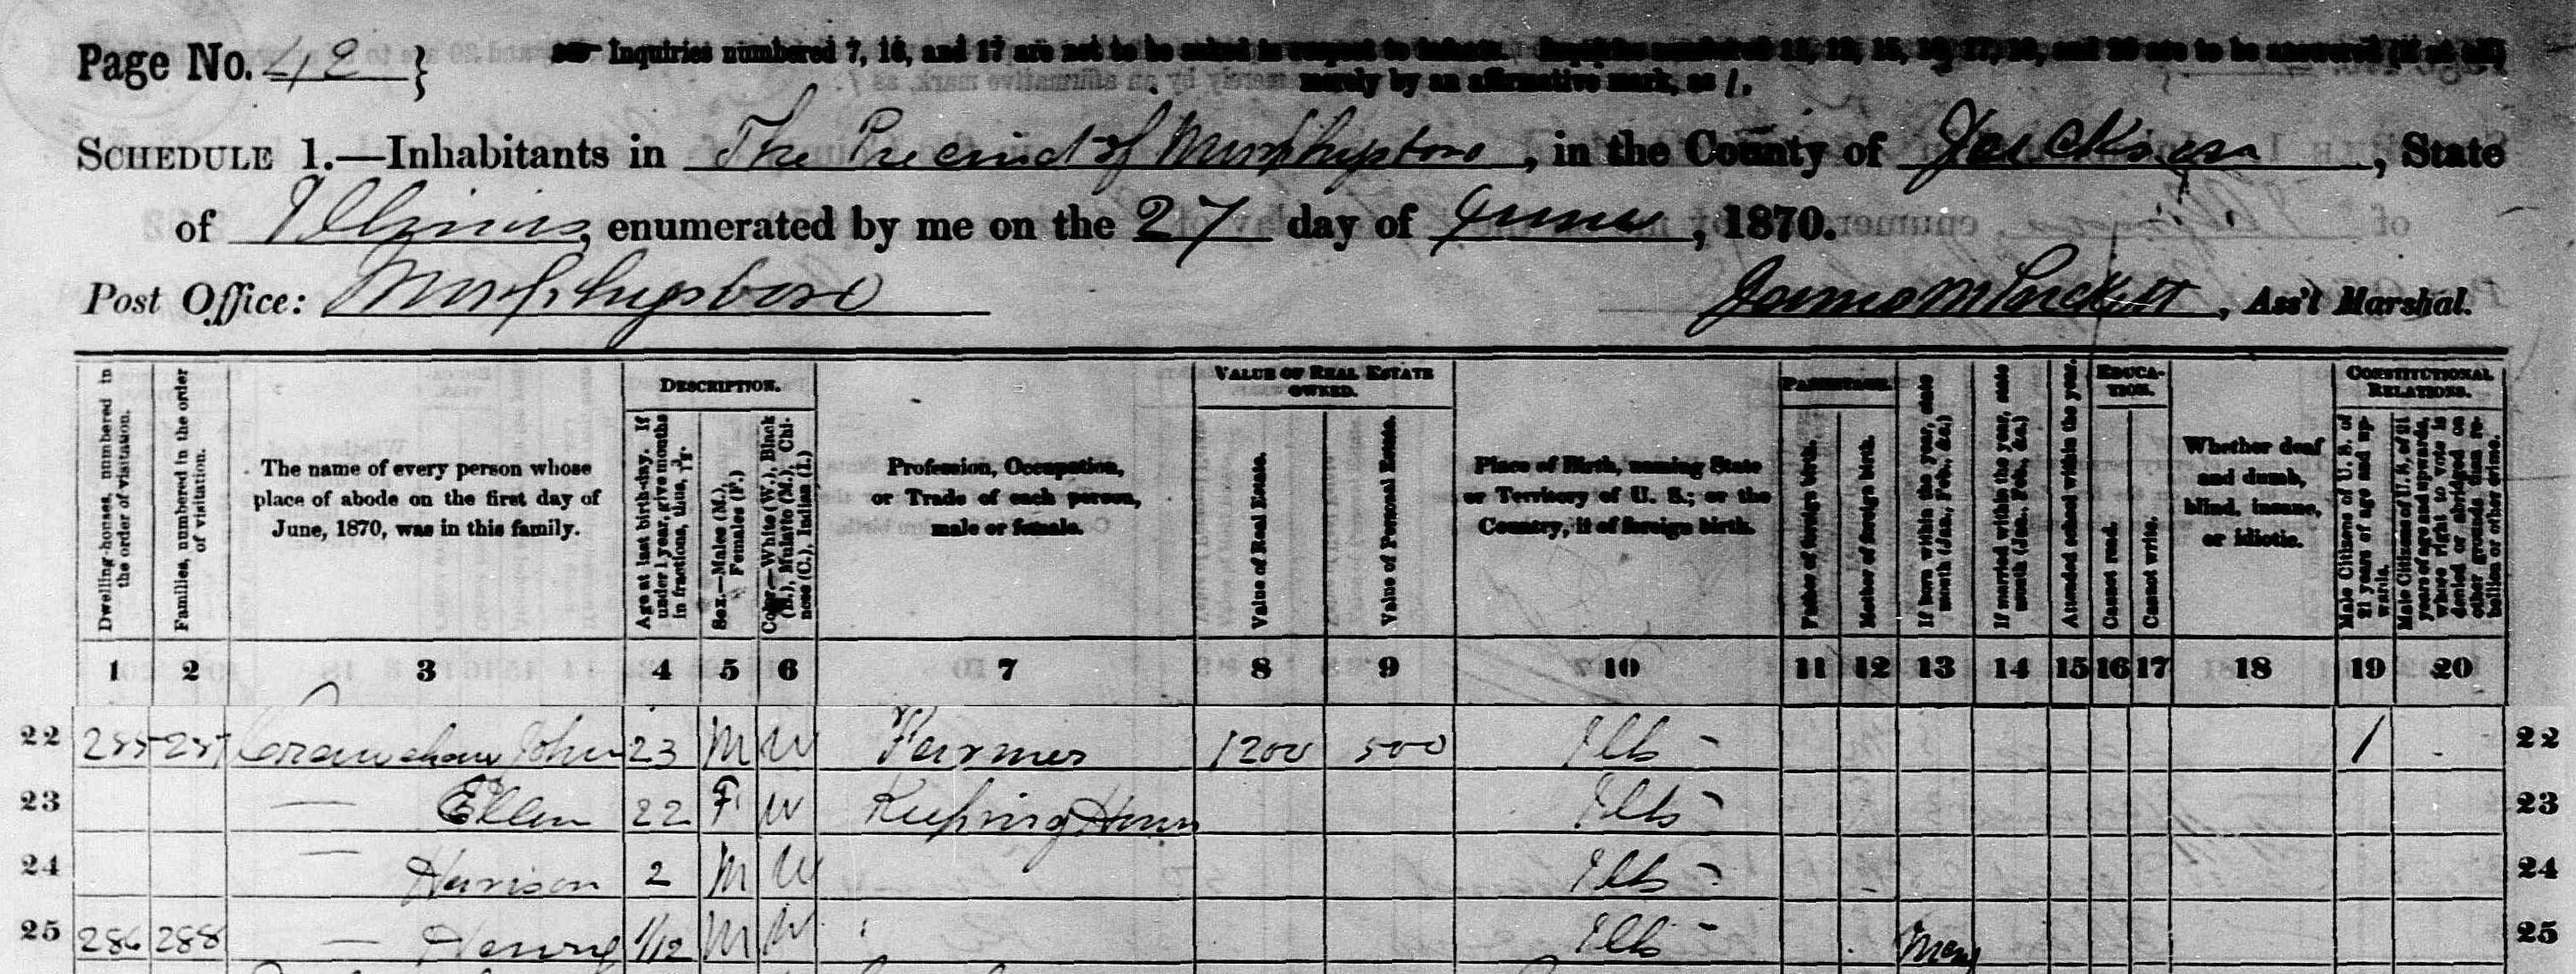 Page No. 42 }
Inquiries numbered 7, 16, and 17 are not to be asked in respect to infants. Inquiries numbered 11, 12, 15, 16, 17, 19, and 20 are to be answered (if at all)
merely by an affirmative mark, as /.
SCHEDULE 1.—Inhabitants in The Precinct of Murphysboro, in the County of Jackson, State
of Illinois, enumerated by me on the 27 day of June, 1870.
Post Office: Murphysboro
James M Puckett, Ass't Marshal.
Dwelling-houses, numbered in the order of visitation.
Families, numbered in the order of visitation.
The name of every person whose place of abode on the first day of June, 1870, was in this family.
DESCRIPTION.
Age at last birth-day. If under 1 year, give months in fractions, thus, 3/12.
Sex.—Males (M.), Females (F.)
Color.—White (W.), Black (B.), Mulatto (M.), Chinese (C.), Indian (I.)
Profession, Occupation, or Trade of each person, male or female.
VALUE OF REAL ESTATE OWNED.
Value of Real Estate.
Value of Personal Estate.
Place of Birth, naming State or Territory of U. S.; or the Country, if of foreign birth.
PARENTAGE.
Father of foreign birth.
Mother of foreign birth.
If born within the year, state month (Jan., Feb., &c.)
If married within the year, state month (Jan., Feb., &c.)
Attended school within the year.
EDUCATION.
Cannot read.
Cannot write.
Whether deaf and dumb, blind, insane, or idiotic.
CONSTITUTIONAL RELATIONS.
Male Citizens of U. S. of 21 years of age and upwards.
Male Citizens of U. S. of 21 years of age and upwards, whose right to vote is denied or abridged on other grounds than rebellion or other crime.
1 2 3 4 5 6 7 8 9 10 11 12 13 14 15 16 17 18 19 20
22 285 287 Crawshaw John 23 M W Farmer 1200 500 Ills 1 22
23 — Ellen 22 F W Keeping House Ills 23
24 — Harrison 2 M W Ills 24
25 286 288 — Henry 1/12 M W Ills May 25